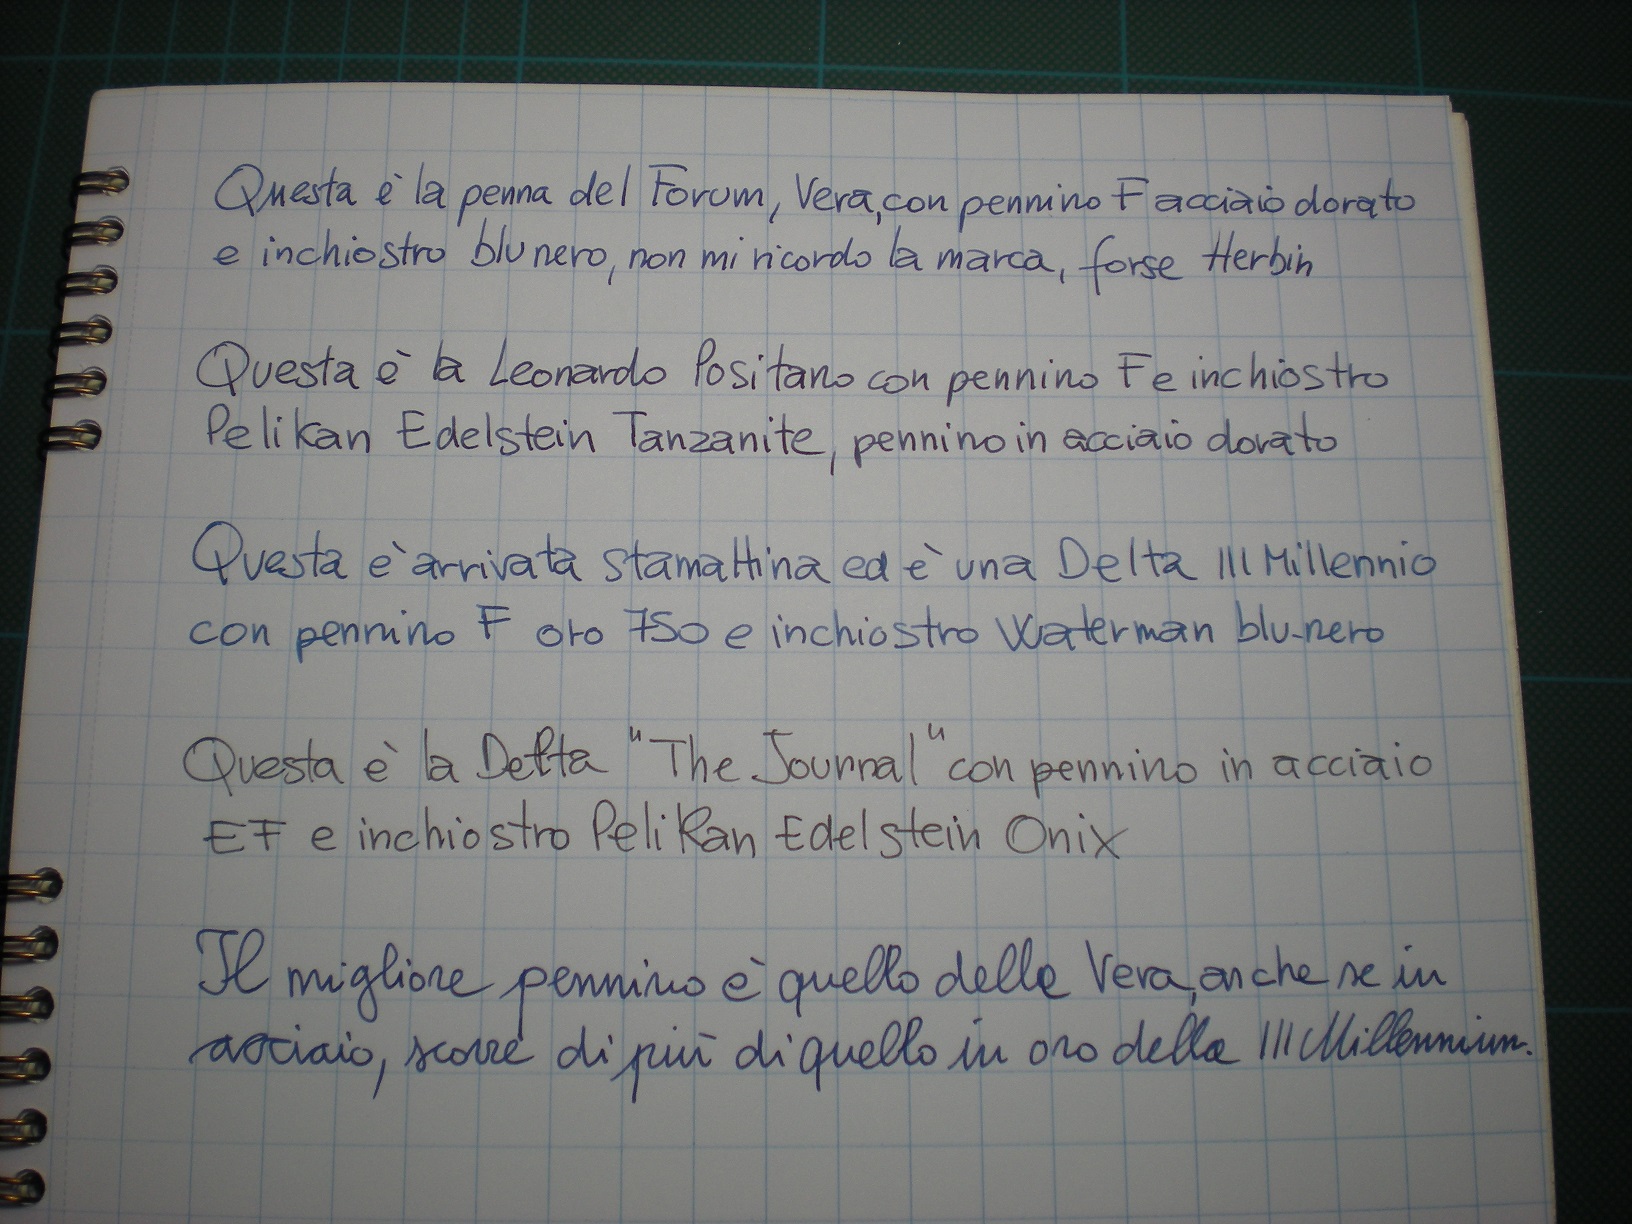 Questa è la penna del Forum, Vera, con pennino F acciaio dorato
e inchiostro blu nero, non mi ricordo la marca, forse Herbin
Questa è la Leonardo Positano con pennino F e inchiostro
Pelikan Edelstein Tanzanite, pennino in acciaio dorato
Questa è arrivata stamattina ed è una Delta III Millennio
con pennino F oro 750 e inchiostro Waterman blu-nero
Questa è la Delta "The Journal" con pennino in acciaio
EF e inchiostro Pelikan Edelstein Onix
Il migliore pennino è quello della Vera, anche se in
acciaio, scorre di più di quello in oro della III Millennium.